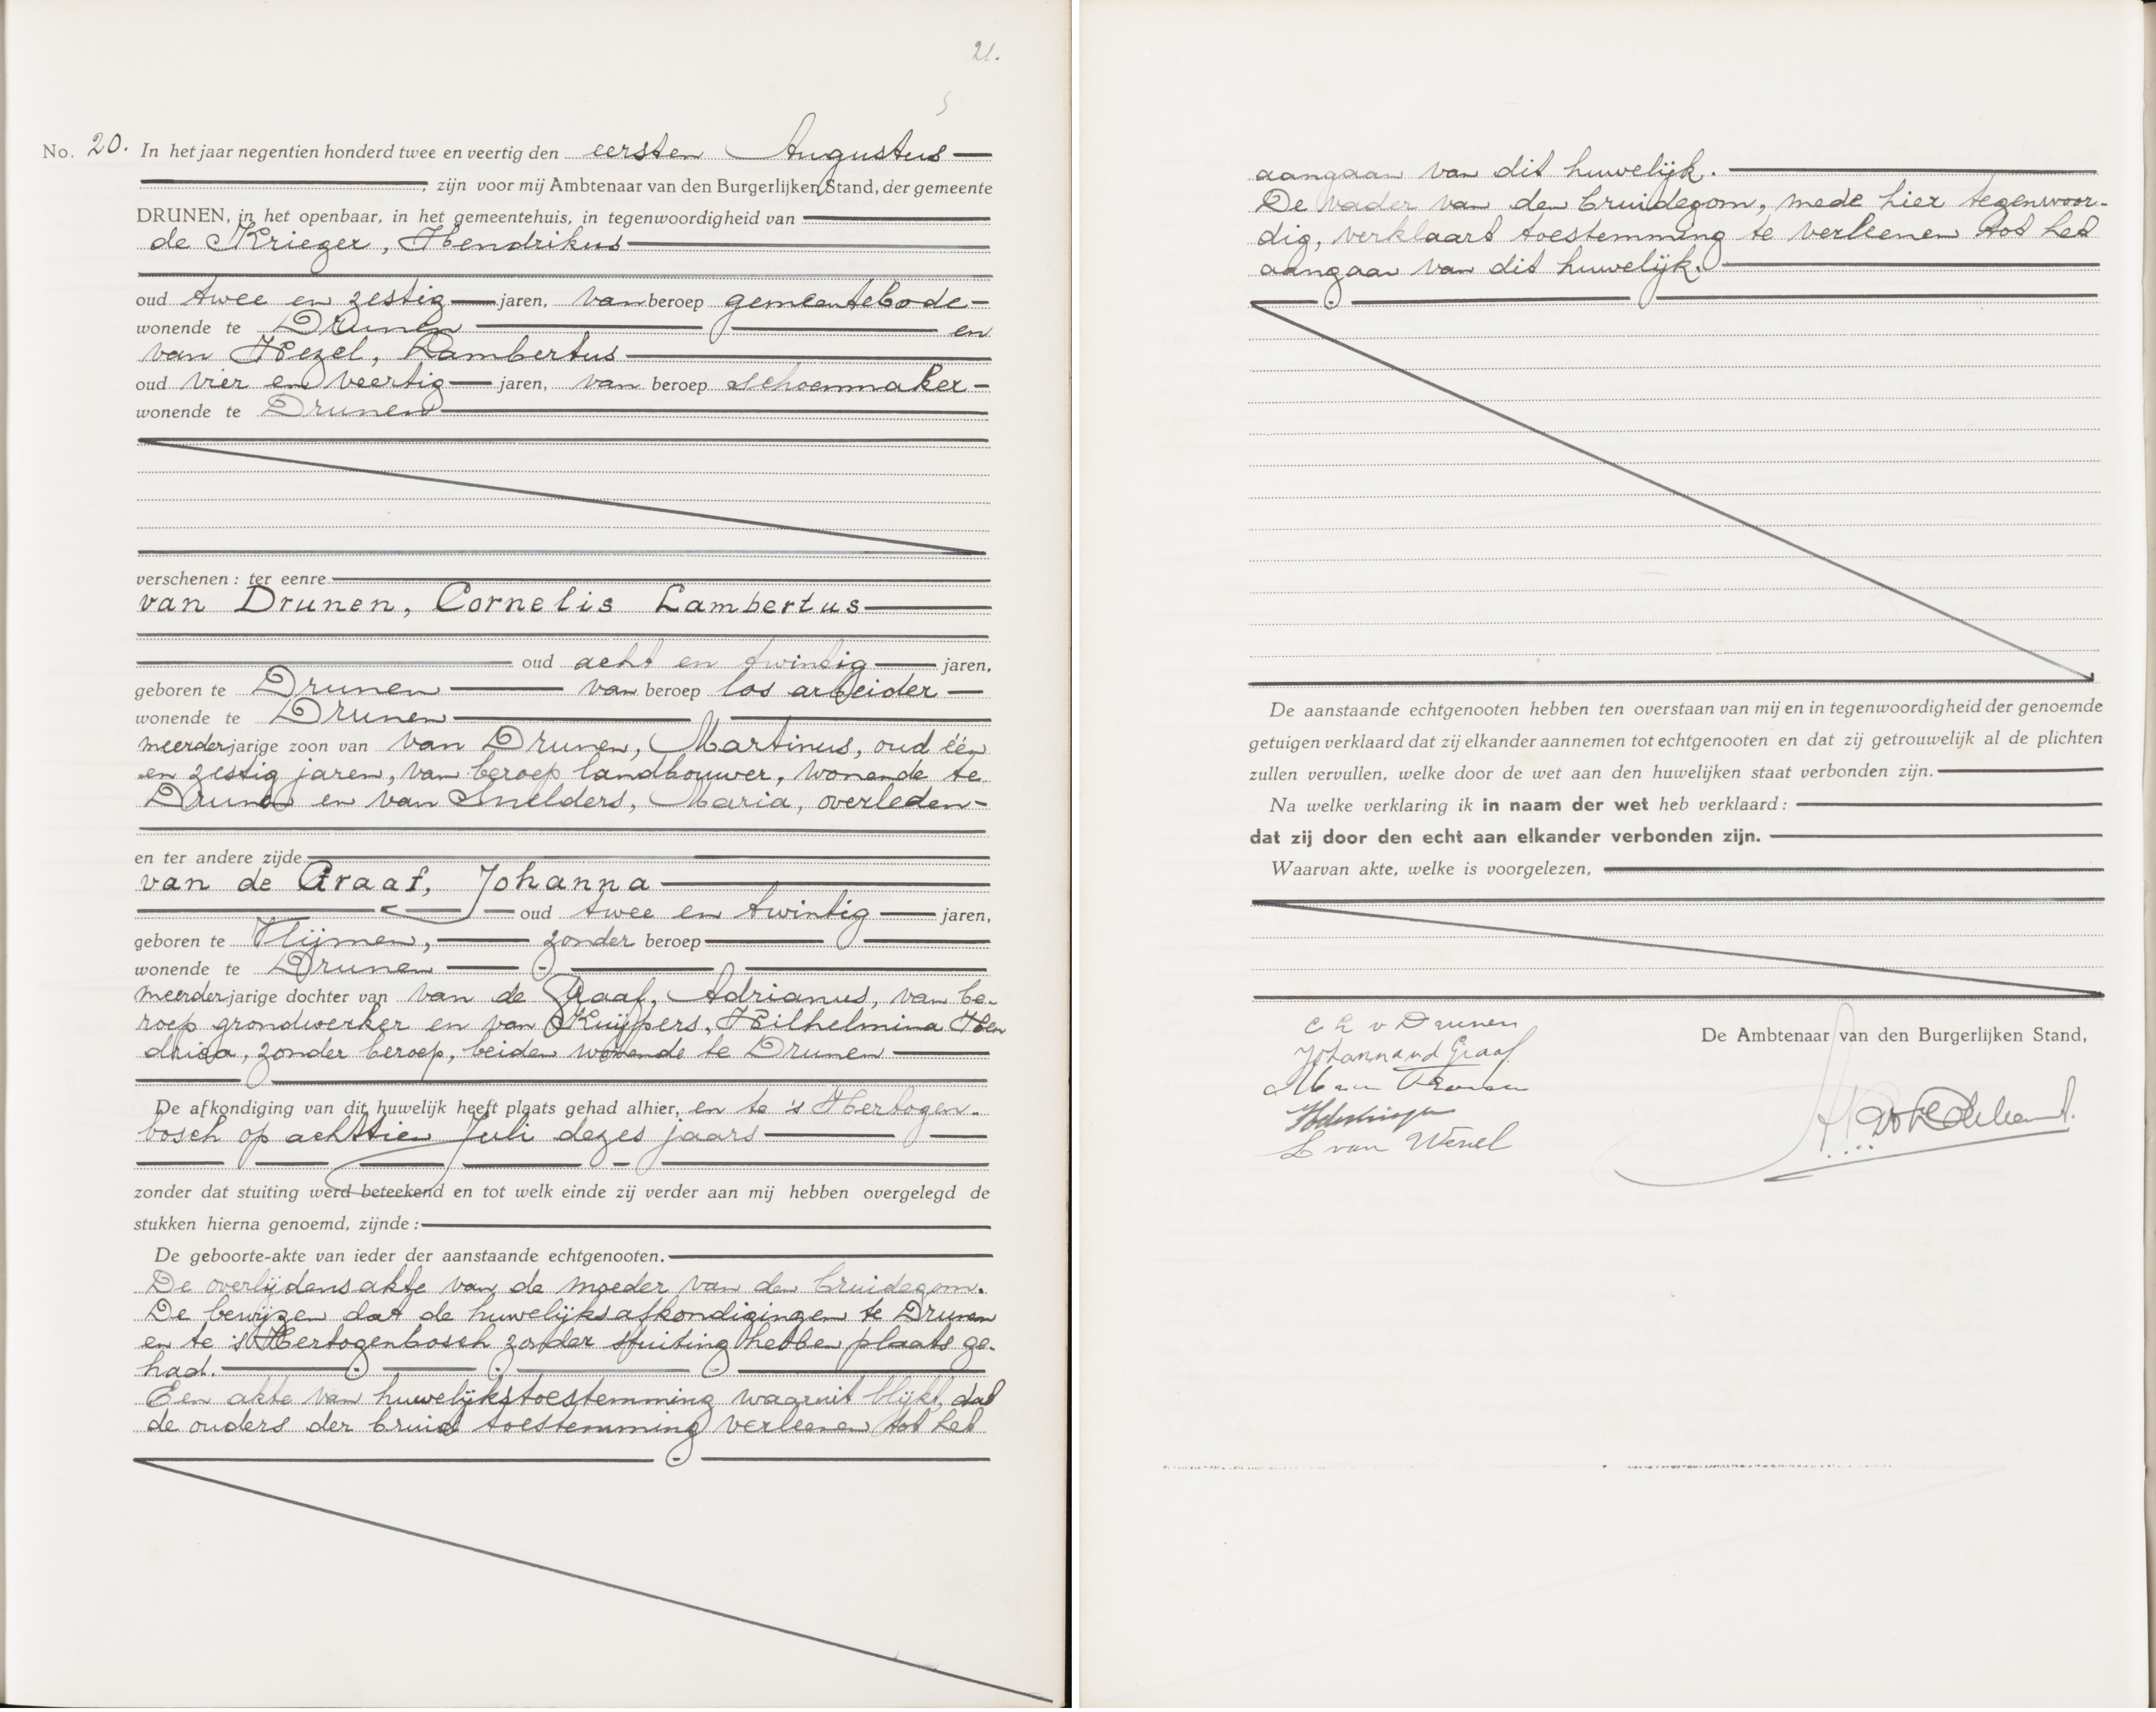 21.
No. 20. In het jaar negentien honderd twee en veertig den eersten Augustus
, zijn voor mij Ambtenaar van den Burgerlijken Stand, der gemeente
DRUNEN, in het openbaar, in het gemeentehuis, in tegenwoordigheid van
de Krieger, Hendrikus
oud twee en zestig jaren, van beroep gemeentebode
wonende te Drunen en
van Wezel, Lambertus
oud vier en veertig jaren, van beroep schoenmaker
wonende te Drunen
verschenen: ter eenre
van Drunen, Cornelis Lambertus
oud acht en twintig jaren,
geboren te Drunen van beroep los arbeider
wonende te Drunen
meerderjarige zoon van van Drunen, Martinus, oud één
en zestig jaren, van beroep landbouwer, wonende te
Drunen en van Snelders, Maria, overleden
en ter andere zijde
van de Graaf, Johanna
oud twee en twintig jaren,
geboren te Vlijmen, zonder beroep
wonende te Drunen
meerderjarige dochter van van de Graaf, Adrianus, van be-
roep grondwerker en van Kuijpers, Wilhelmina Hen
drica, zonder beroep, beiden wonende te Drunen
De afkondiging van dit huwelijk heeft plaats gehad alhier, en te 's Hertogen-
bosch op achttien Juli dezes jaars
zonder dat stuiting werd beteekend en tot welk einde zij verder aan mij hebben overgelegd de
stukken hierna genoemd, zijnde:
De geboorte-akte van ieder der aanstaande echtgenooten.
De overlijdensakte van de moeder van den bruidegom.
De bewijzen dat de huwelijksafkondigingen te Drunen
en te 's Hertogenbosch zonder stuiting hebben plaats ge-
had.
Een akte van huwelijkstoestemming waaruit blijkt, dat
de ouders der bruid toestemming verleenen tot het
aangaan van dit huwelijk.
De vader van den bruidegom, mede hier tegenwoor-
dig, verklaart toestemming te verleenen tot het
aangaan van dit huwelijk.
De aanstaande echtgenooten hebben ten overstaan van mij en in tegenwoordigheid der genoemde
getuigen verklaard dat zij elkander aannemen tot echtgenooten en dat zij getrouwelijk al de plichten
zullen vervullen, welke door de wet aan den huwelijken staat verbonden zijn.
Na welke verklaring ik in naam der wet heb verklaard:
dat zij door den echt aan elkander verbonden zijn.
Waarvan akte, welke is voorgelezen,
C L v Drunen
Johanna vd Graaf
De Ambtenaar van den Burgerlijken Stand,
M van Drunen
L van Wezel